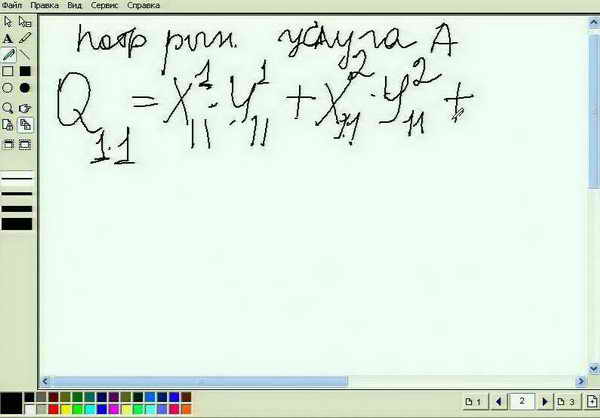 Файл Правка Вид Сервис Справка
потр рын. услуга А
Q₁.₁ = X¹₁₁ · Y¹₁₁ + X²₁.₁ · Y²₁₁ +
1 2 3